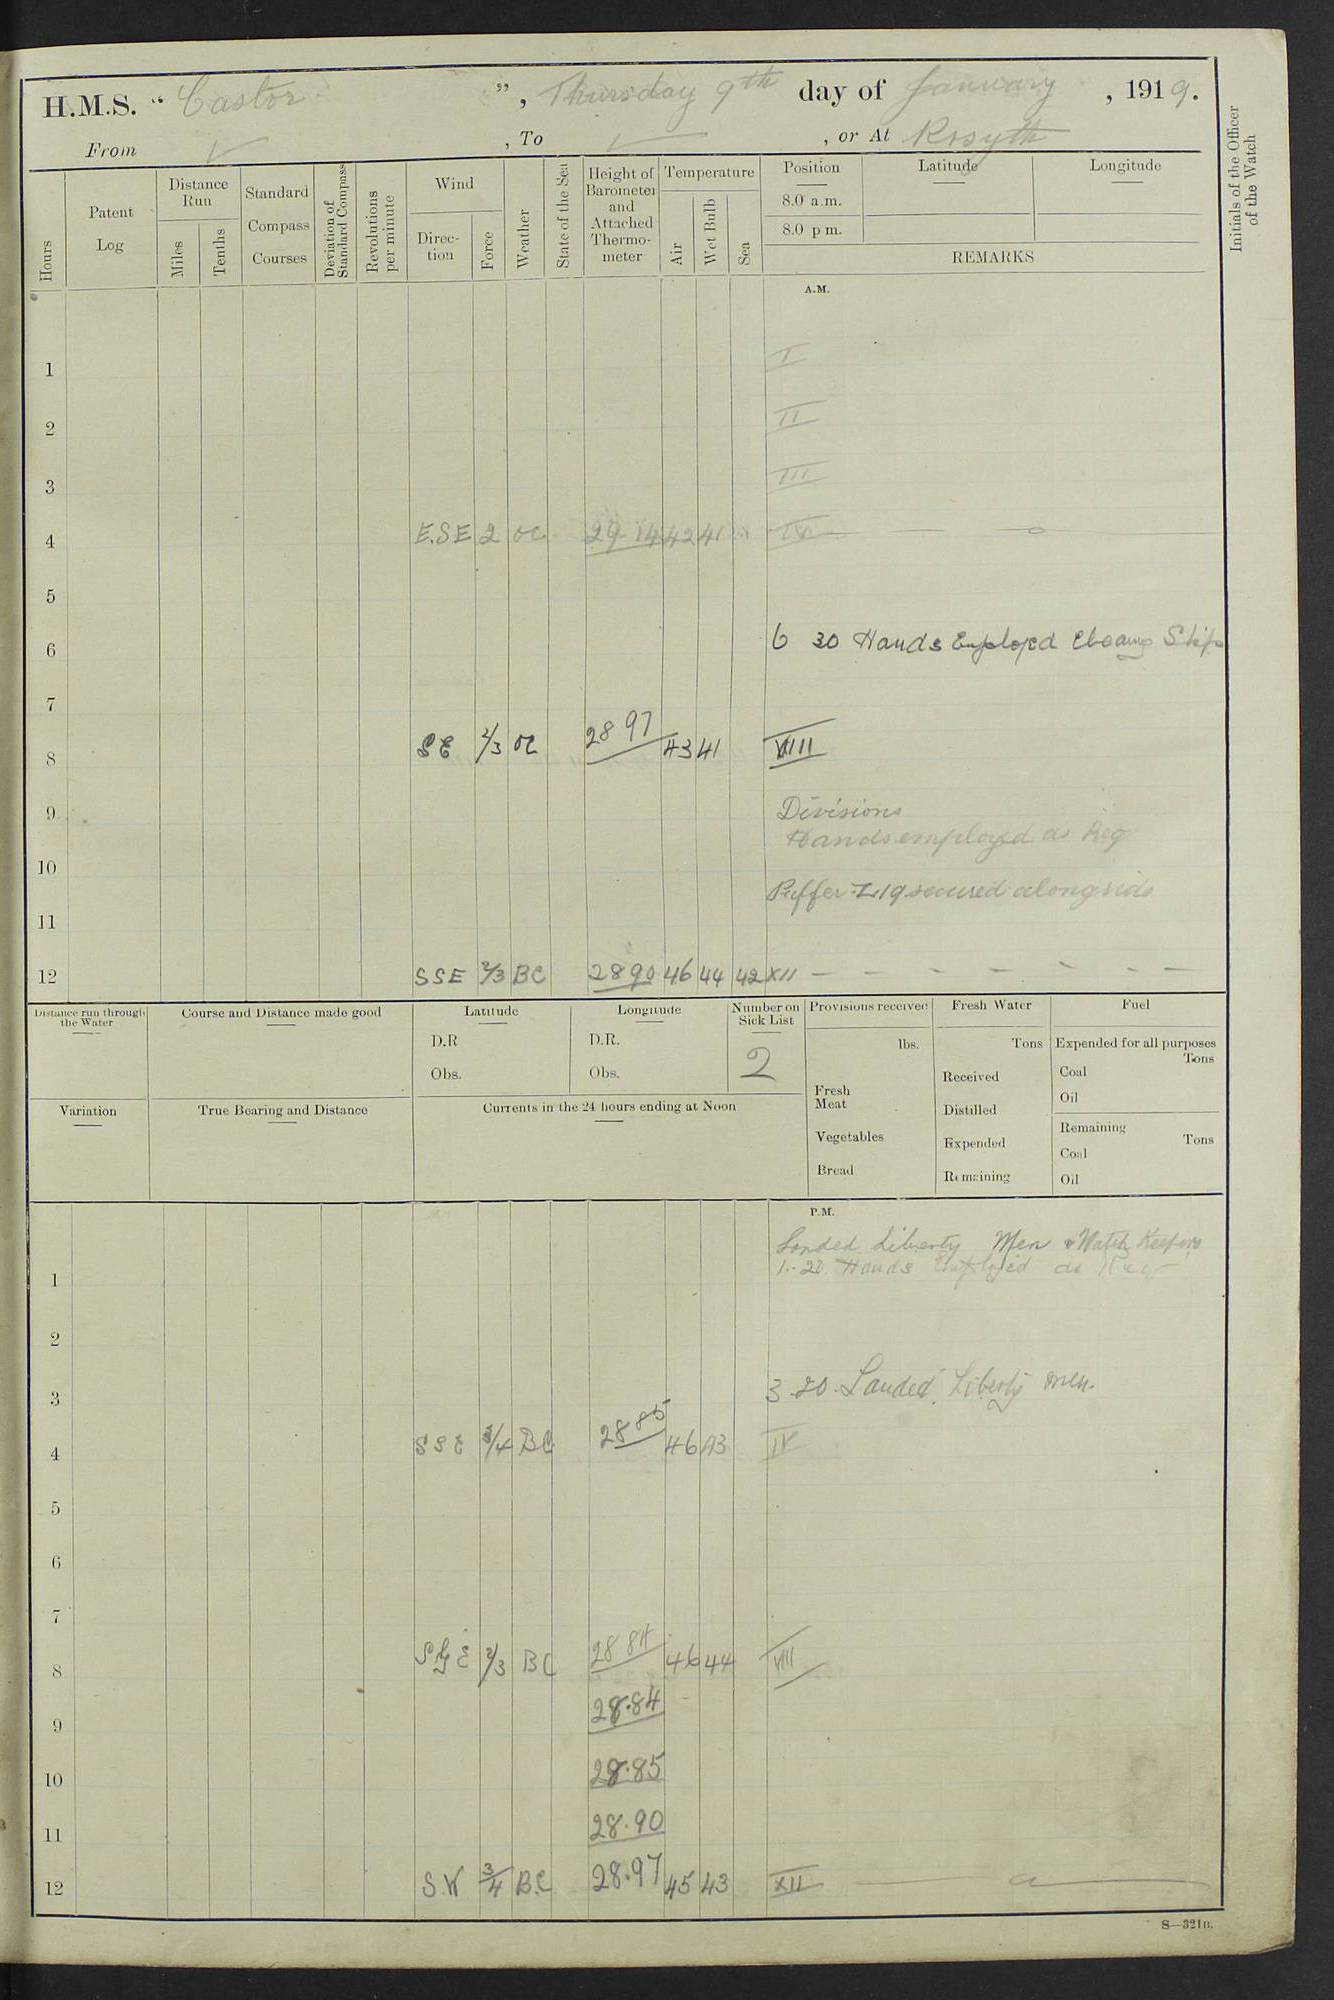 H.M.S. “ Castor ”, Thursday 9th day of January, 1919.
From ✓ , To ✓ , or At Rosyth
Hours
Patent Log
Distance Run
Miles
Tenths
Standard Compass Courses
Deviation of Standard Compass
Revolutions per minute
Wind
Direction
Force
Weather
State of the Sea
Height of Barometer and Attached Thermometer
Temperature
Air
Wet Bulb
Sea
Position
8.0 a.m.
8.0 p.m.
Latitude
Longitude
REMARKS
Initials of the Officer of the Watch
A.M.
1 I
2 II
3 III
4 E.SE 2 oc 29 14 42 41 IV
5
6 6 30 Hands Employed Ship
7
8 SE 2/3 oc 28 97 43 41 VIII
9 Divisions
Hands employed as Req
10
Puffer Z19 secured alongside
11
12 SSE 2/3 BC 28 90 46 44 42 XII
Distance run through the Water
Course and Distance made good
Latitude
D.R
Obs.
Longitude
D.R.
Obs.
Number on Sick List
2
Provisions received
lbs.
Fresh Meat
Vegetables
Bread
Fresh Water
Tons
Received
Distilled
Expended
Remaining
Fuel
Expended for all purposes
Tons
Coal
Oil
Remaining
Tons
Coal
Oil
Variation
True Bearing and Distance
Currents in the 24 hours ending at Noon
P.M.
Landed Liberty Men & Watch Keepers
1 1.20. Hands Employed as Req
2
3 3.20. Landed Liberty men.
4 SSE 3/4 BC 28 85 46 43 IV
5
6
7
8 S by E 2/3 BC 28 84 46 44 VIII
9 28.84
10 28.85
11 28.90
12 S.W 3/4 B.C 28.97 45 43 XII
S—321B.